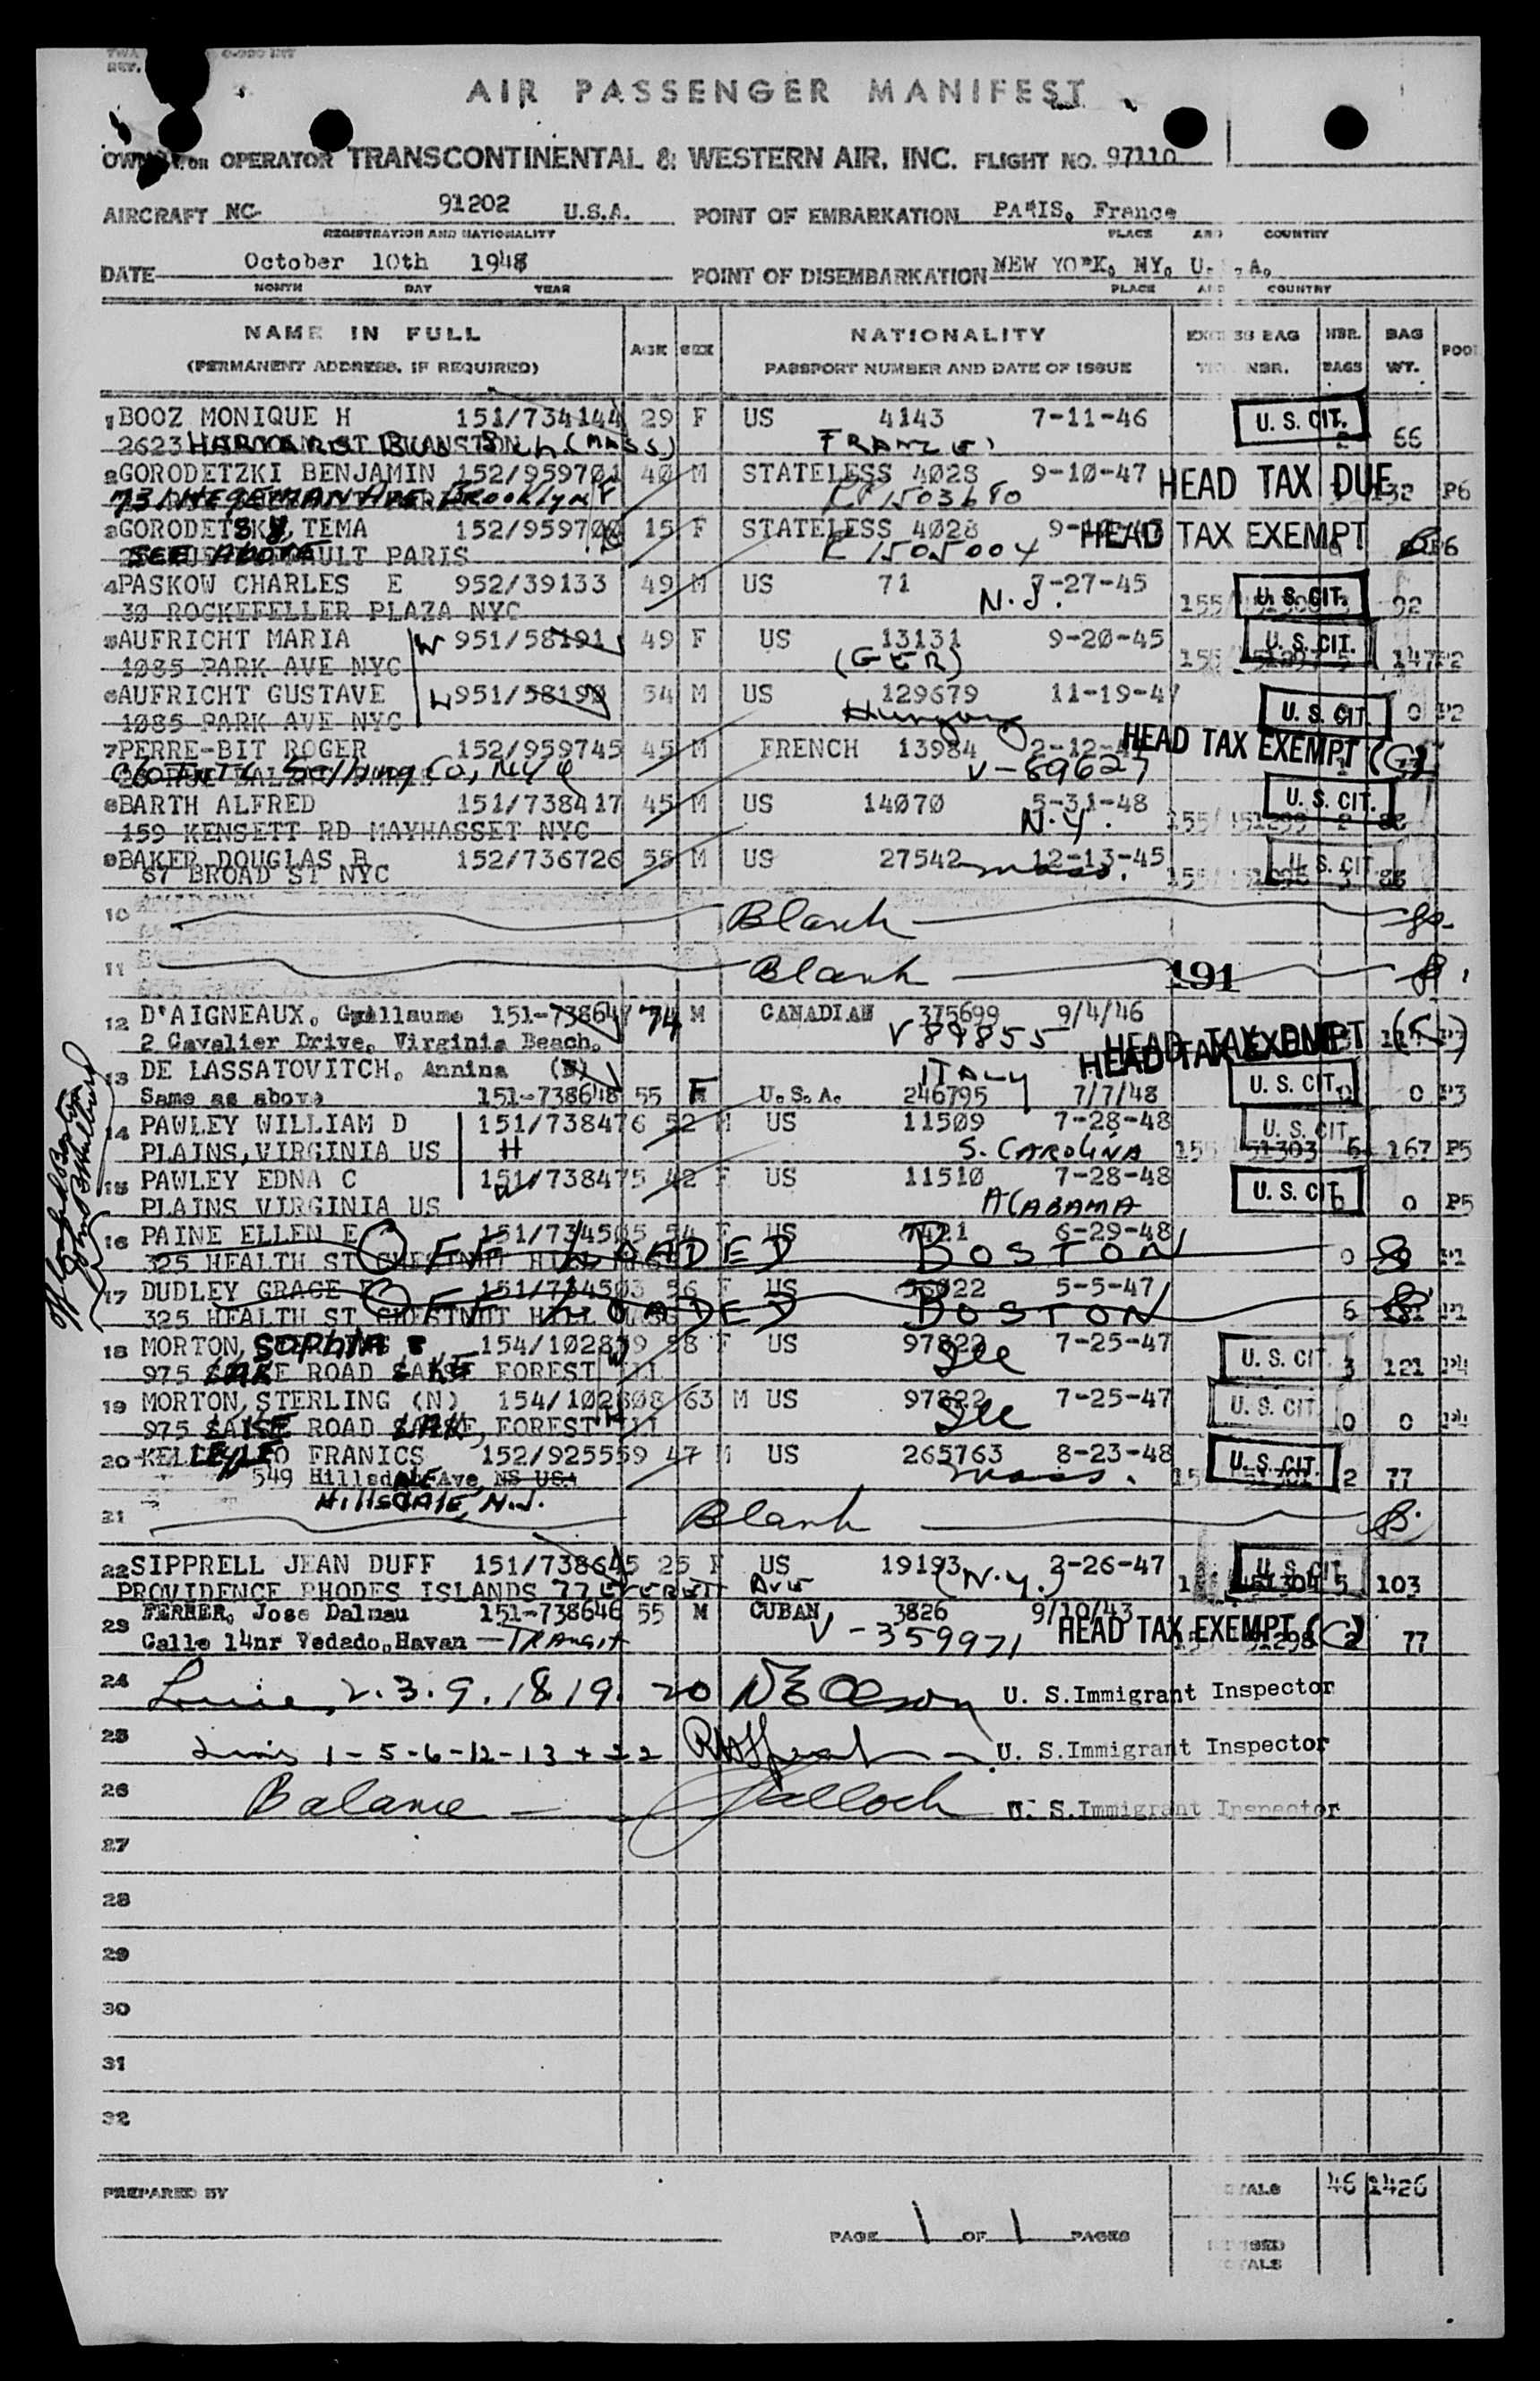 AIR PASSENGER MANIFEST
OR OPERATOR TRANSCONTINENTAL & WESTERN AIR, INC. FLIGHT NO. 97110
AIRCRAFT NC 91202 U.S.A. POINT OF EMBARKATION PARIS, France
REGISTRATION AND NATIONALITY PLACE AND COUNTRY
DATE October 10th 1948 POINT OF DISEMBARKATION NEW YORK, NY, U.S.A.
MONTH DAY YEAR PLACE AND COUNTRY
NAME IN FULL AGE SEX NATIONALITY EXCESS BAG NBR. BAG POOL
(PERMANENT ADDRESS, IF REQUIRED) PASSPORT NUMBER AND DATE OF ISSUE NBR. BAGS WT.
1 BOOZ MONIQUE H 151/734144 29 F US 4143 7-11-46 U. S. CIT. 2 66
2623
2 GORODETZKI BENJAMIN 152/959701 40 M STATELESS 4028 9-10-47 HEAD TAX DUE 132 P6
HEGEMAN Ave. Brooklyn
3 GORODETSKY, TEMA 152/959700 15 F STATELESS 4028 HEAD TAX EXEMPT P6
SEE Above PARIS
4 PASKOW CHARLES E 952/39133 49 M US 71 7-27-45 U. S. CIT. 92
30 ROCKEFELLER PLAZA NYC N.J.
5 AUFRICHT MARIA W 951/58191 49 F US 13131 9-20-45 U. S. CIT.
1085 PARK AVE NYC (GER) 147 P2
6 AUFRICHT GUSTAVE H 951/58190 54 M US 129679 11-19-47 U. S. CIT. 0 P2
1085 PARK AVE NYC Hungary
7 PERRE-BIT ROGER 152/959745 45 M FRENCH 13984 HEAD TAX EXEMPT (G)
Selling Co, NY V-89627
8 BARTH ALFRED 151/738417 45 M US 14070 5-31-48 U. S. CIT.
159 KENSETT RD MAYHASSET NYC N.Y. 2 88
9 BAKER DOUGLAS B 152/736726 55 M US 27542 12-13-45 U. S. CIT.
67 BROAD ST NYC mass. 88
10 Blank
11 Blank 191
12 D'AIGNEAUX, Guillaume 151-738647 74 M CANADIAN 375699 9/4/46
2 Cavalier Drive, Virginia Beach. V 89855 HEAD TAX EXEMPT
13 DE LASSATOVITCH, Annina ITALY
Same as above 151-738648 55 F U.S.A. 246795 7/7/48 U. S. CIT. 0 0 P3
14 PAWLEY WILLIAM D 151/738476 52 M US 11509 7-28-48 U. S. CIT.
PLAINS, VIRGINIA US H S. CAROLINA 6 167 P5
15 PAWLEY EDNA C 151/738475 42 F US 11510 7-28-48 U. S. CIT.
PLAINS VIRGINIA US ALABAMA 0 0 P5
16 PAINE ELLEN E 151/734505 54 F US 7421 6-29-48
325 HEALTH ST CHESTNUT HILL OFF LOADED BOSTON 0
17 DUDLEY GRACE 151/734503 56 F US 56022 5-5-47
325 HEALTH ST CHESTNUT HILL OFF LOADED BOSTON 6
18 MORTON, SOPHIA 154/102809 58 F US 97822 7-25-47 U. S. CIT.
975 LAKE ROAD LAKE FOREST ILL See 3 121 P4
19 MORTON, STERLING (N) 154/102808 63 M US 97822 7-25-47 U. S. CIT.
975 LAKE ROAD LAKE, FOREST ILL See 0 0 P4
20 KELLEY LEO FRANICS 152/925559 47 M US 265763 8-23-48 U. S. CIT.
549 Hillsdale Ave, NS USA mass. 2 77
Hillsdale, N.J.
21 Blank
22 SIPPRELL JEAN DUFF 151/738645 25 F US 19193 2-26-47 U. S. CIT.
PROVIDENCE RHODES ISLANDS 77 EVERETT AVE (N.Y.) 5 103
23 FERRER, Jose Dalmau 151-738646 55 M CUBAN 3826 9/10/43
Calle 14nr Vedado, Havan — TRANSIT V-359971 HEAD TAX EXEMPT (C) 2 77
24 2. 3. 9. 18. 19. 20 U. S. Immigrant Inspector
25 1-5-6-12-13 + 22 U. S. Immigrant Inspector
26 Balance — U. S. Immigrant Inspector
27
28
29
30
31
32
PREPARED BY TOTALS 46 1426
PAGE 1 OF 1 PAGES REVISED
TOTALS